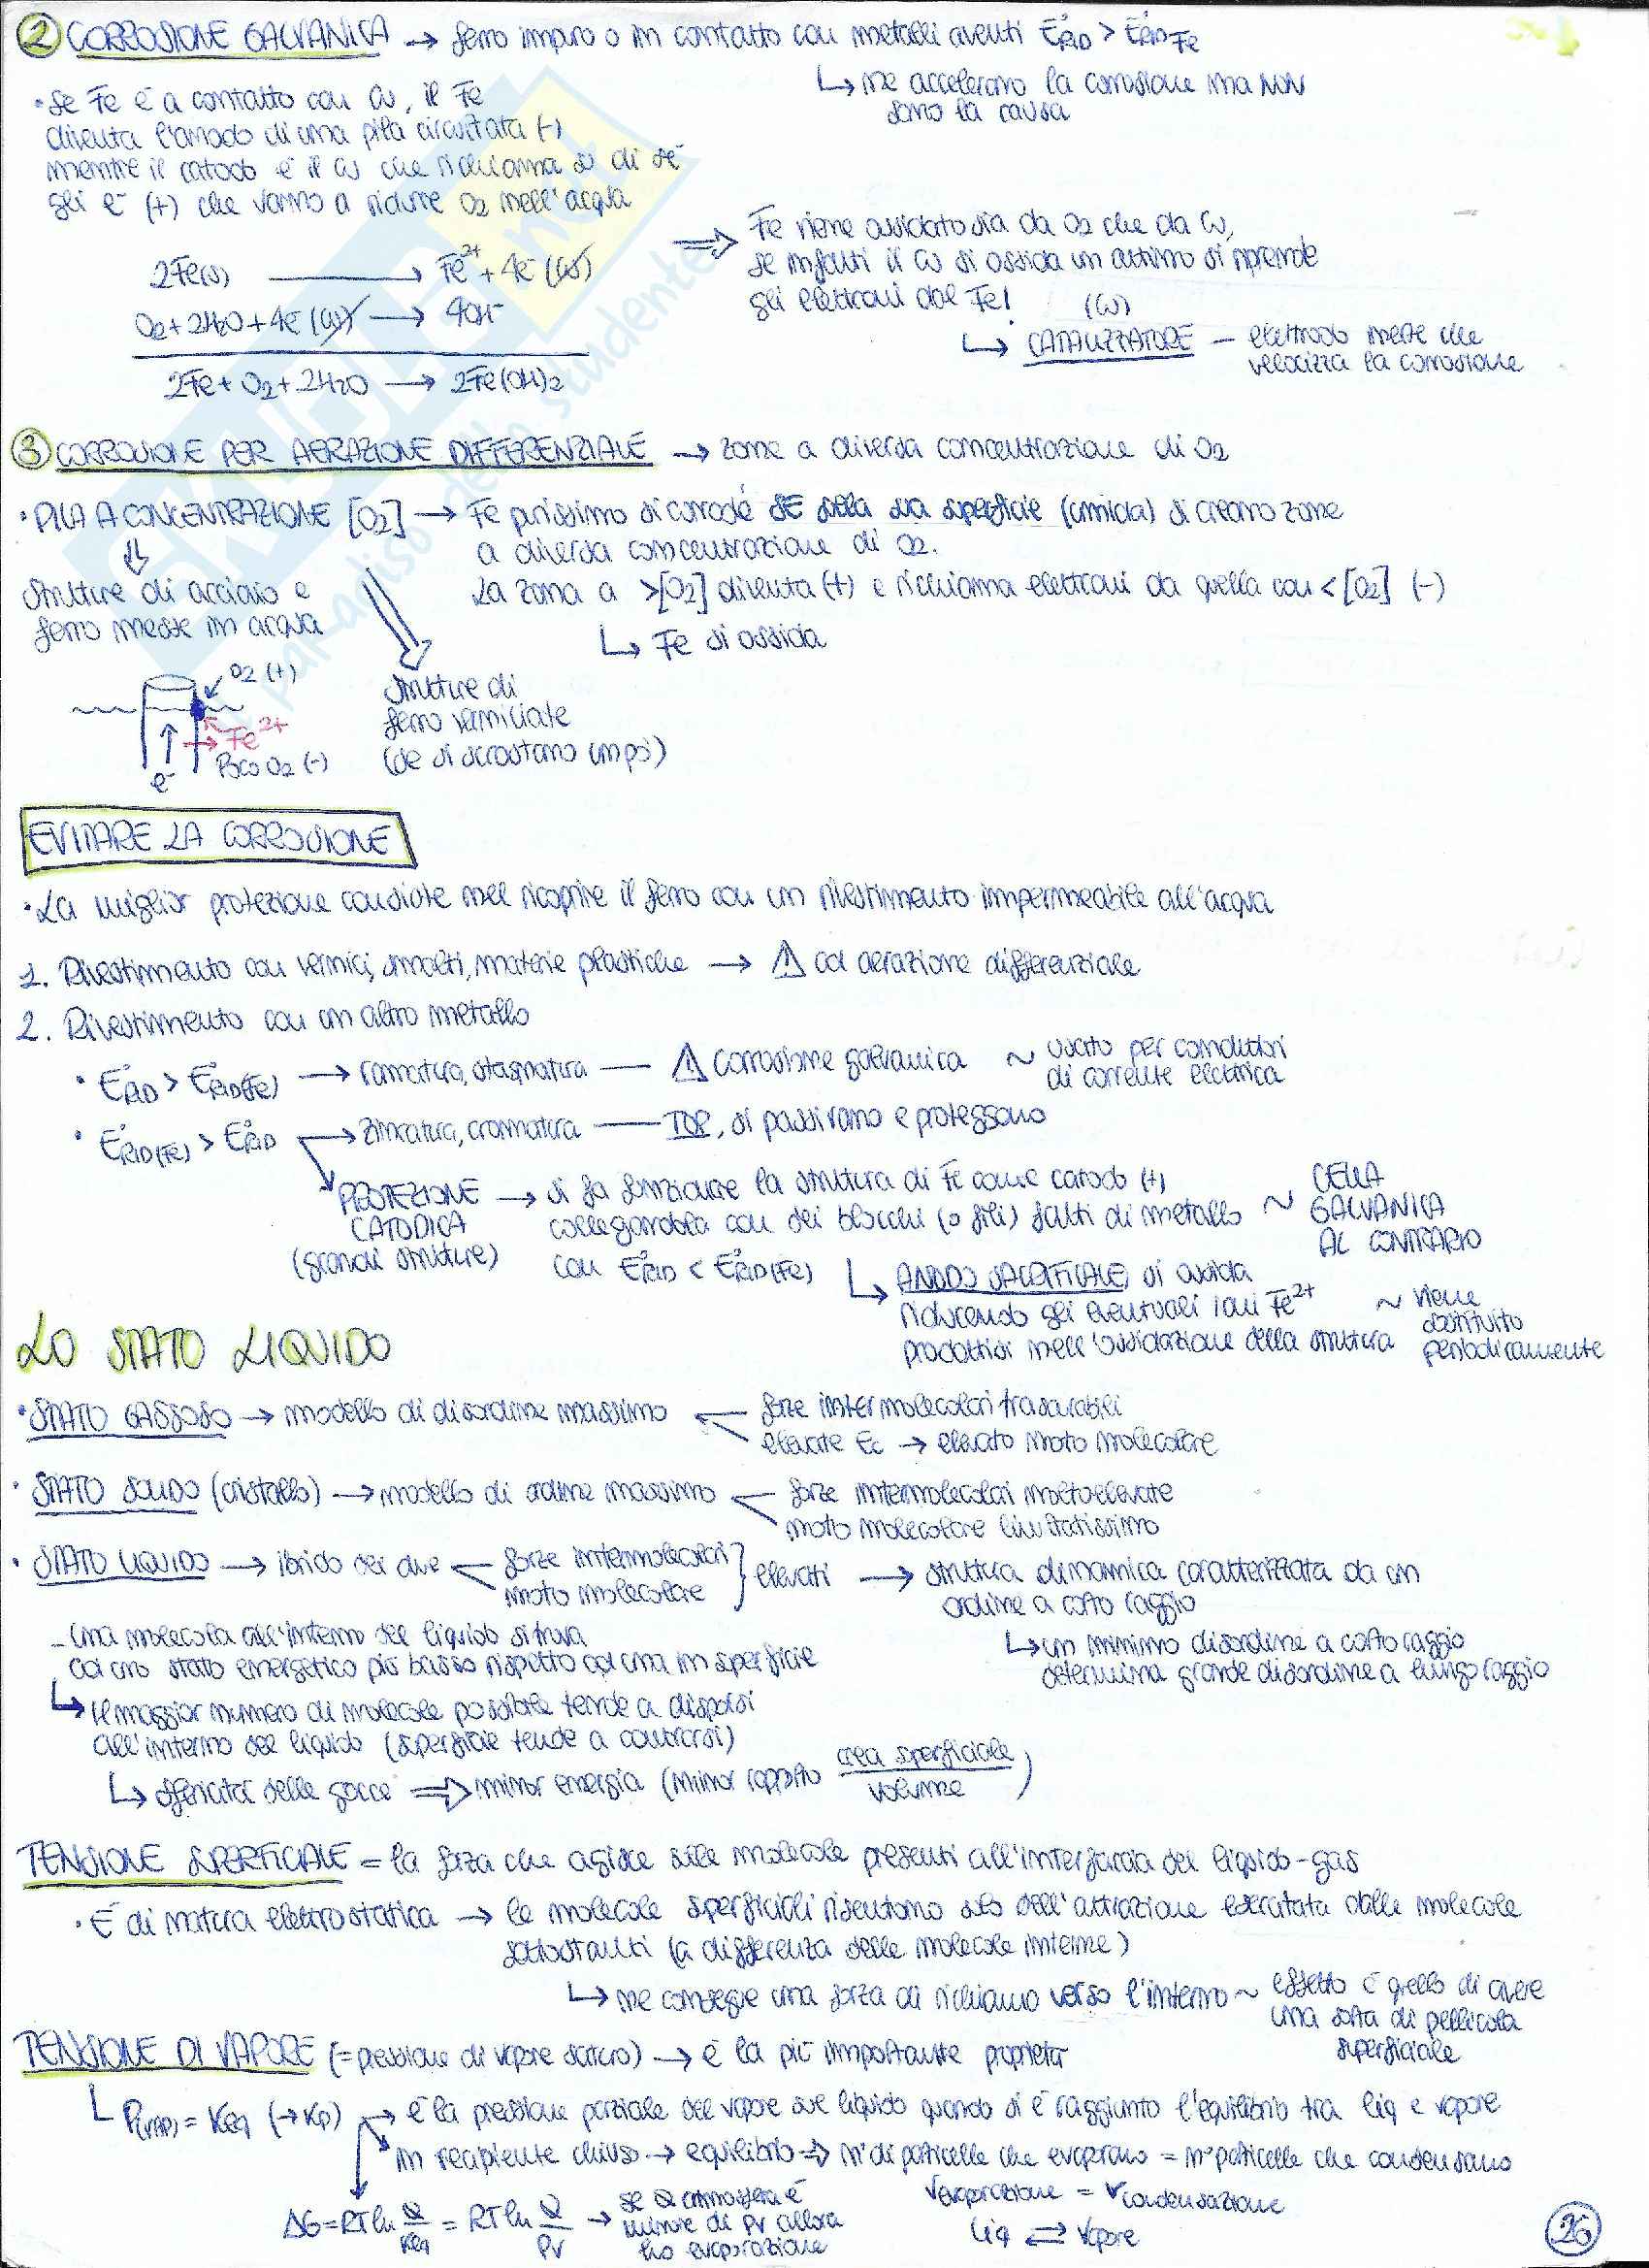 ② CORROSIONE GALVANICA → ferro impuro o in contatto con metalli aventi E°RID > E°RID Fe
↳ ne accelerano la corrosione ma NON
sono la causa
• Se Fe è a contatto con Cu, il Fe
diventa l'anodo di una pila circuitata (-)
mentre il catodo è il Cu che richiama su di sé
gli e⁻ (+) che vanno a ridurre O2 nell'acqua
2Fe(s) → Fe²⁺ + 4e⁻ (Cu)
O2 + 2H2O + 4e⁻ (Cu) → 4OH⁻
2Fe + O2 + 2H2O → 2Fe(OH)2
⇒ Fe viene ossidato sia da O2 che da Cu,
se infatti il Cu si ossida un attimo si riprende
gli elettroni dal Fe!
(Cu)
↳ CATALIZZATORE — elettrodo inerte che
velocizza la corrosione
③ CORROSIONE PER AERAZIONE DIFFERENZIALE → zone a diversa concentrazione di O2
• PILA A CONCENTRAZIONE [O2] → Fe purissimo si corrode SE sulla sua superficie (umida) si creano zone
a diversa concentrazione di O2.
La zona a >[O2] diventa (+) e richiama elettroni da quella con <[O2] (-)
↳ Fe si ossida
strutture di acciaio e
ferro messe in acqua
O2 (+)
Fe²⁺
Poco O2 (-)
e⁻
strutture di
ferro verniciate
(che si scrostano un po')
EVITARE LA CORROSIONE
• La miglior protezione consiste nel ricoprire il ferro con un rivestimento impermeabile all'acqua
1. Rivestimento con vernici, smalti, materie plastiche → ⚠ ad aerazione differenziale
2. Rivestimento con un altro metallo
• E°RID > E°RID(Fe) → ramatura, stagnatura — ⚠ corrosione galvanica ~ usato per conduttori
di corrente elettrica
• E°RID(Fe) > E°RID → zincatura, cromatura — TOP, si passivano e proteggono
PROTEZIONE
CATODICA
(grandi strutture)
→ si fa funzionare la struttura di Fe come catodo (+)
collegandola con dei blocchi (o fili) fatti di metallo
con E°RID < E°RID(Fe)
~ CELLA
GALVANICA
AL CONTRARIO
↳ ANODO SACRIFICALE, si ossida
riducendo gli eventuali ioni Fe²⁺
prodottisi nell'ossidazione della struttura
~ viene
sostituito
periodicamente
LO STATO LIQUIDO
• STATO GASSOSO → modello di disordine massimo
forze intermolecolari trascurabili
elevate Ec → elevato moto molecolare
• STATO SOLIDO (cristallo) → modello di ordine massimo
forze intermolecolari molto elevate
moto molecolare limitatissimo
• STATO LIQUIDO → ibrido dei due
forze intermolecolari
moto molecolare
} elevati → struttura dinamica caratterizzata da un
ordine a corto raggio
↳ un minimo disordine a corto raggio
determina grande disordine a lungo raggio
- Una molecola all'interno del liquido si trova
ad uno stato energetico più basso rispetto ad una in superficie
↳ Il maggior numero di molecole possibile tende a disporsi
all'interno del liquido (superficie tende a contrarsi)
↳ sfericità delle gocce ⇒ minor energia (minor rapporto area superficiale
volume)
TENSIONE SUPERFICIALE = la forza che agisce sulle molecole presenti all'interfaccia del liquido-gas
• È di natura elettrostatica → le molecole superficiali risentono solo dell'attrazione esercitata dalle molecole
sottostanti (a differenza delle molecole interne)
↳ ne consegue una forza di richiamo verso l'interno ~ effetto è quello di avere
una sorta di pellicola
superficiale
TENSIONE DI VAPORE (= pressione di vapore saturo) → è la più importante proprietà
P(vap) = Keq (→ Kp) → è la pressione parziale del vapore sul liquido quando si è raggiunto l'equilibrio tra liq e vapore
in recipiente chiuso → equilibrio ⇒ n° di particelle che evaporano = n° particelle che condensano
v evaporazione = v condensazione
liq ⇌ vapore
ΔG = RT ln Q/Keq = RT ln Q/Pv → se Q atmosfera è
minore di Pv allora
ho evaporazione
26